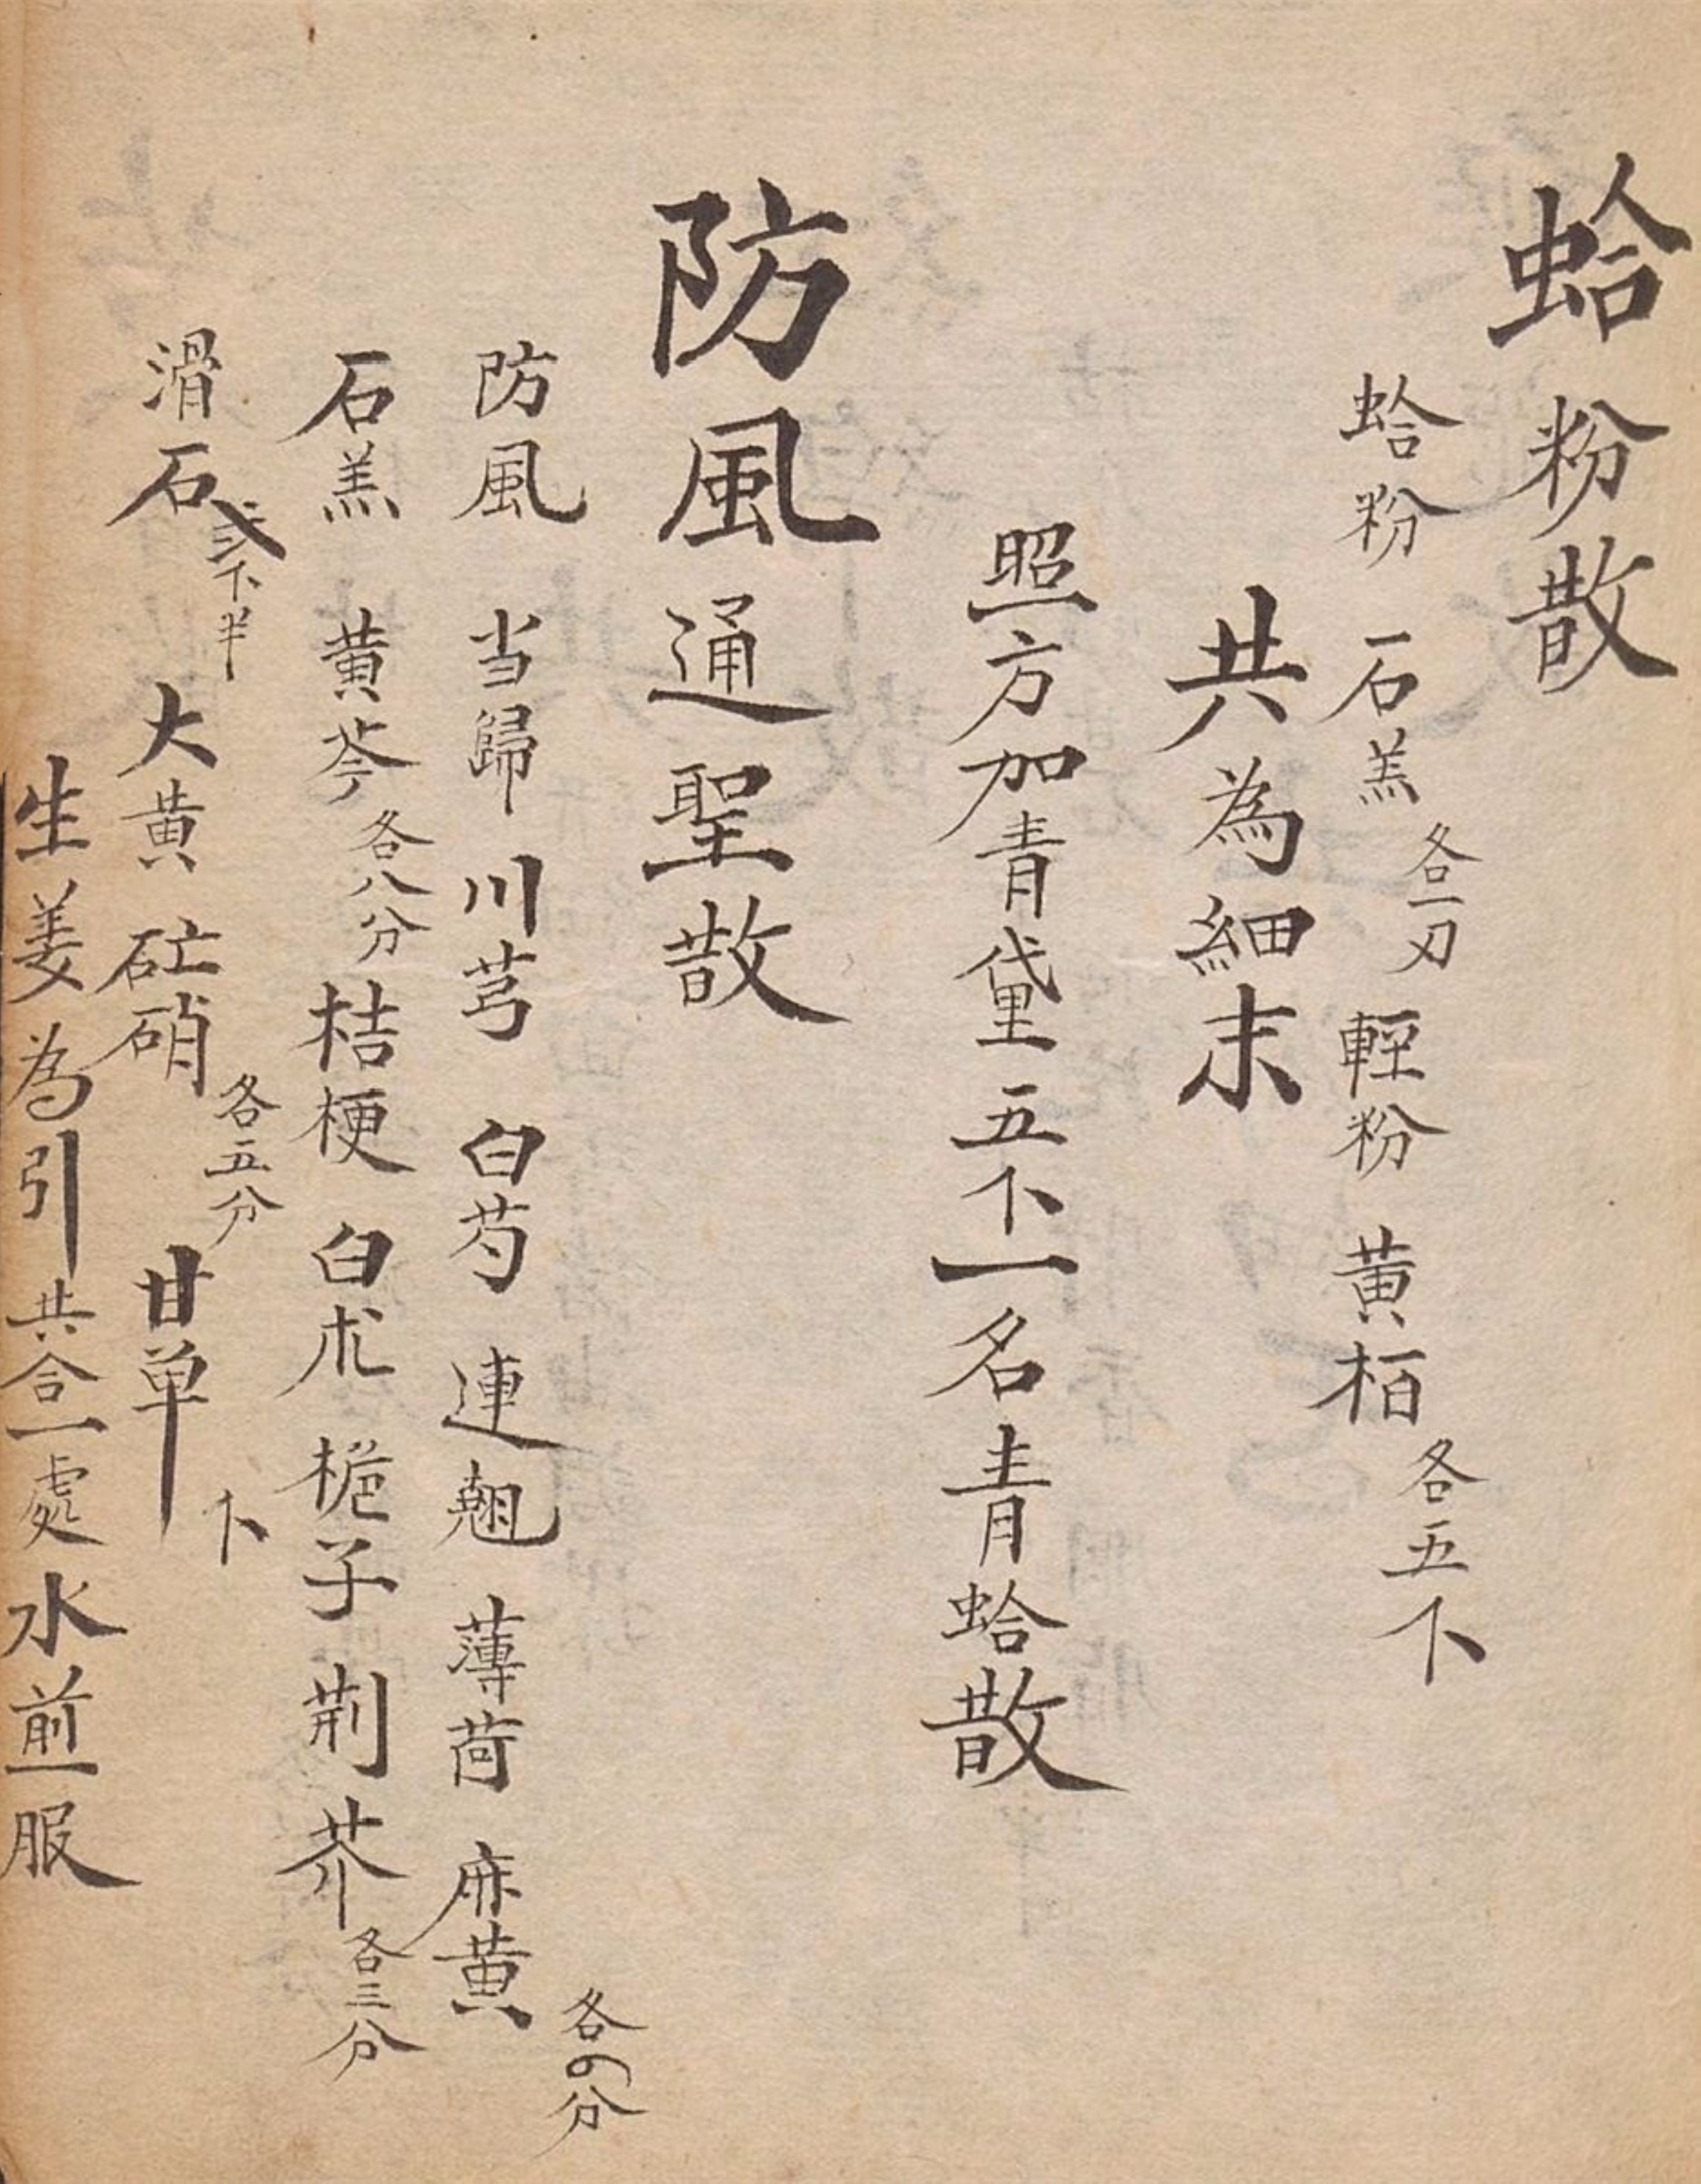 蛤粉散
蛤粉 石羔 各一刃 輕粉 黄栢 各五下
共為細末
照方加青黛五下一名青蛤散
防風通聖散
防風 当歸 川芎 白芍 連翹 薄荷 麻黄 各四分
石羔 黄芩 各八分 桔梗 白朮 梔子 荆芥 各三分
滑石 弍下半 大黄 硭硝 各五分 甘草 下
生姜為引共合一處水煎服